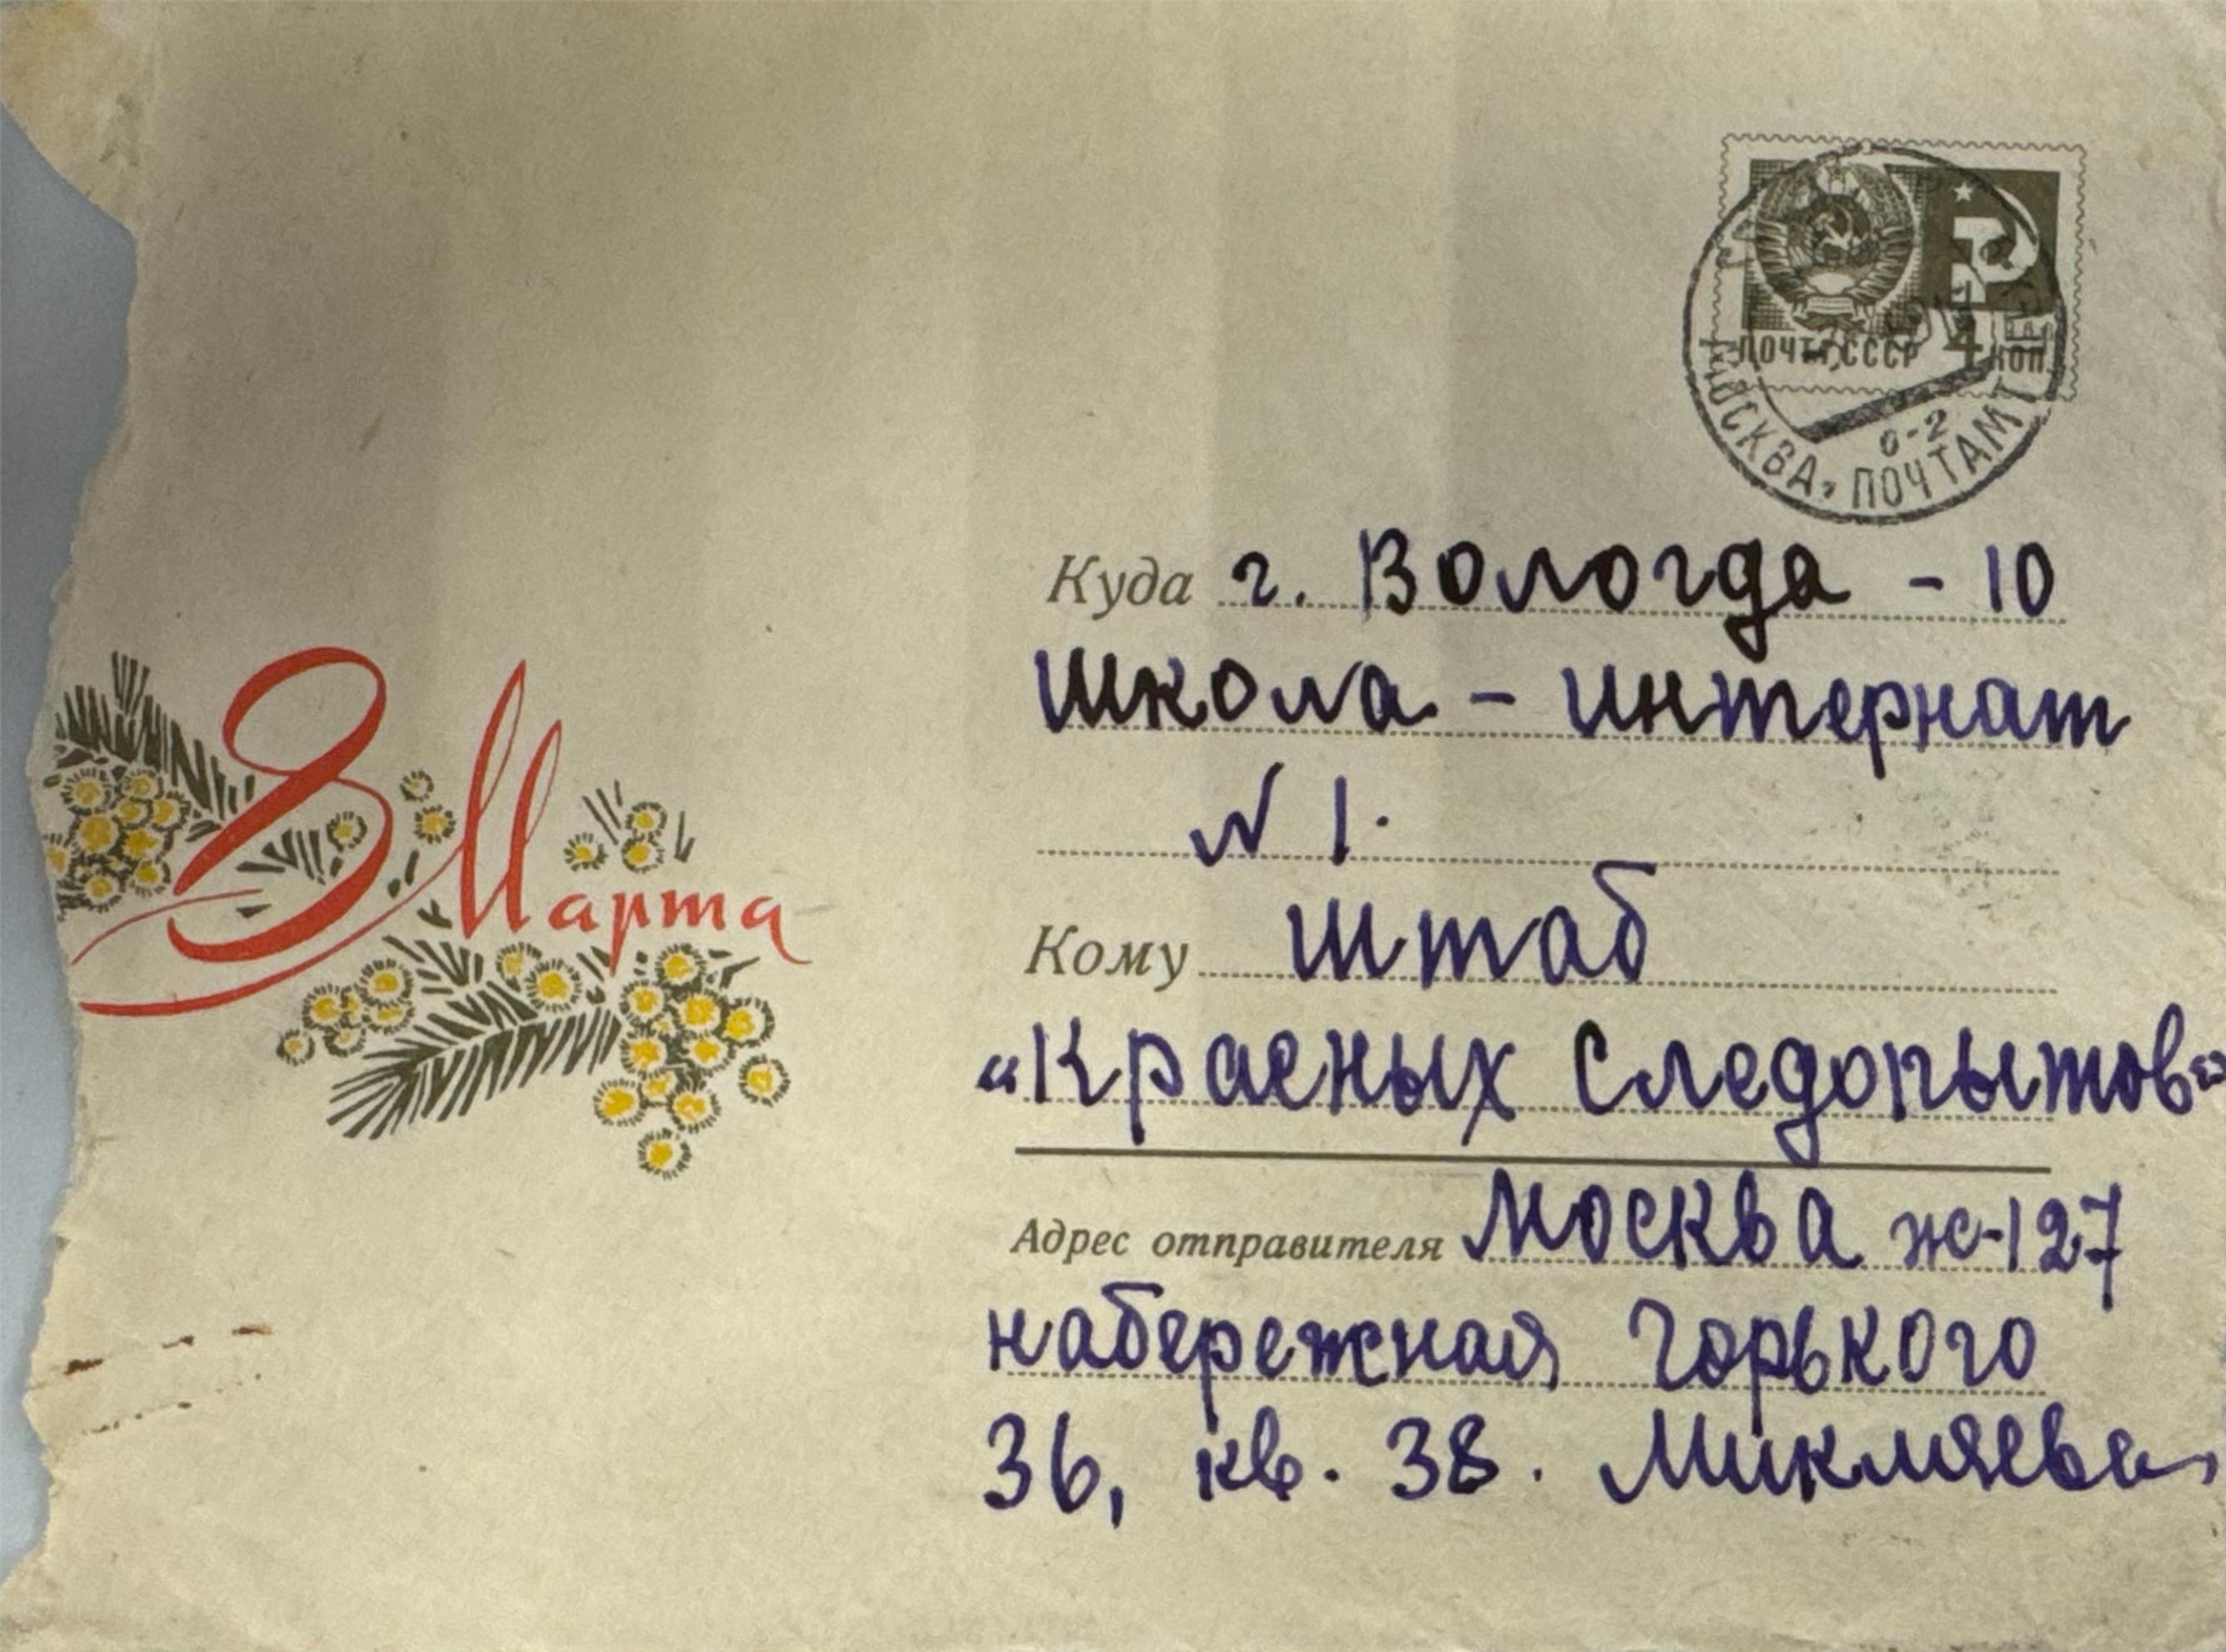 8 Марта
ПОЧТА СССР 4 КОП.
0-2
МОСКВА, ПОЧТАМТ
Куда г. Вологда - 10
Школа - интернат
N 1.
Кому Штаб
"Красных Следопытов"
Адрес отправителя Москва ж-127
набережная Горького
36, кв. 38. Микляева